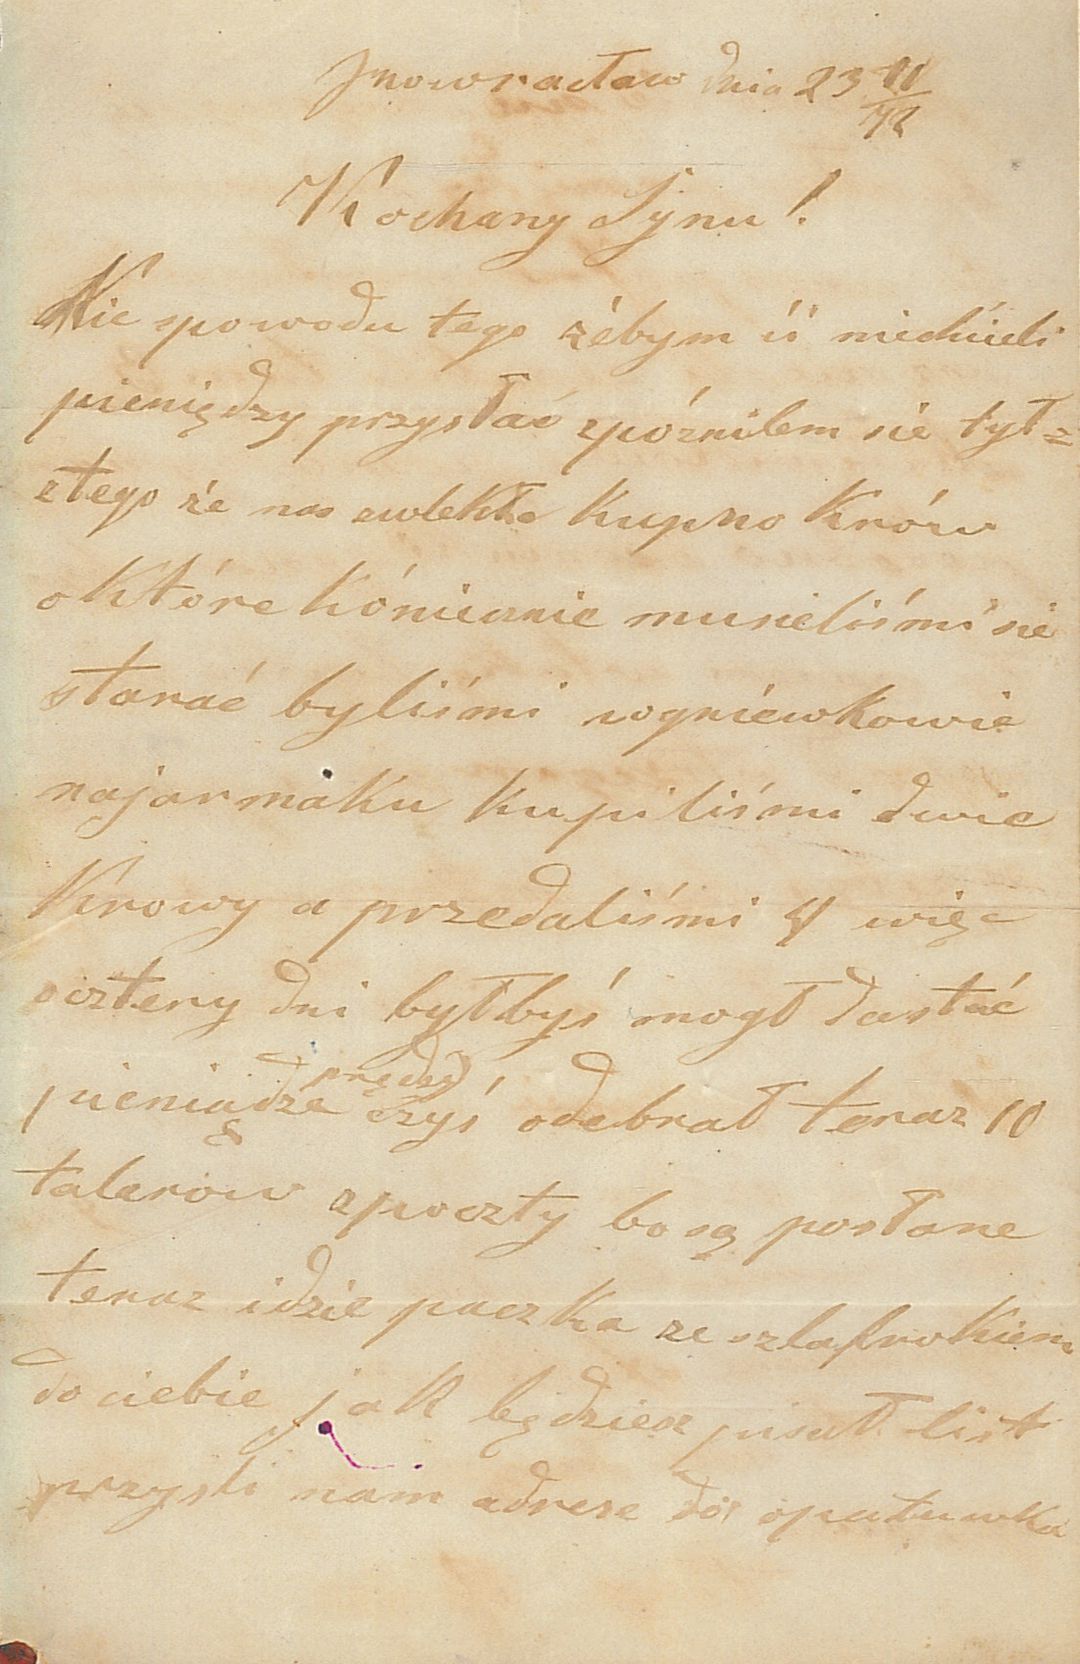 Jnowracław dnia 23 11/72
Kochany Synu!
Nie spowodu tego żébym ći niechćieli
pieniędzy przysłać spóznilem sie tyl
ztego że nas zwlekło kupno Krów
o które kónieznie musieliśmi sie
starać byliśmi wgniéwkowie
najarmaku kupiliśmi dwie
Krowy a przedaliśmi 4 więc
oczteny dni byłbyś mogł dastać
pieniądze prędzy czyś odebrał teraz 10
talerow spoczty bo są posłane
teraz idzie paczka ze szlafrokiem
do ciebie jak będziesz pisał list
przysli nam adrese do opatuwka